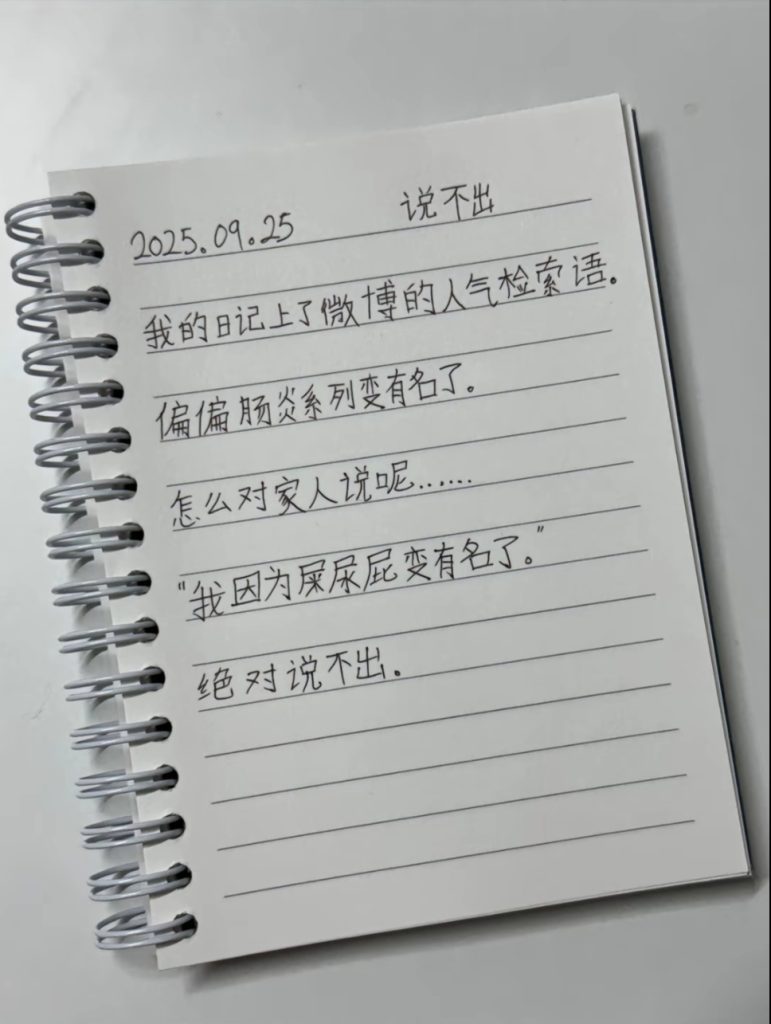 2025.09.25 说不出
我的日记上了微博的人气检索语。
偏偏肠炎系列变有名了。
怎么对家人说呢......
"我因为屎尿屁变有名了。"
绝对说不出。